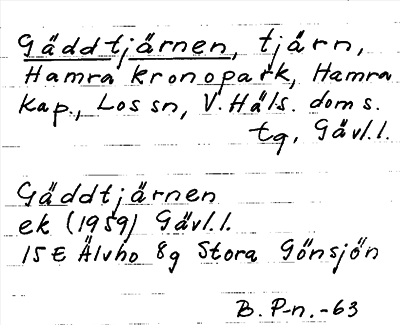 Gäddtjärnen, tjärn,
Hamra kronopark, Hamra
kap., Los sn, V. Häls. doms.
tg, Gävl.l.
Gäddtjärnen
ek (1959) Gävl.l.
15E Älvho 8g Stora Gönsjön
B. P-n.-63